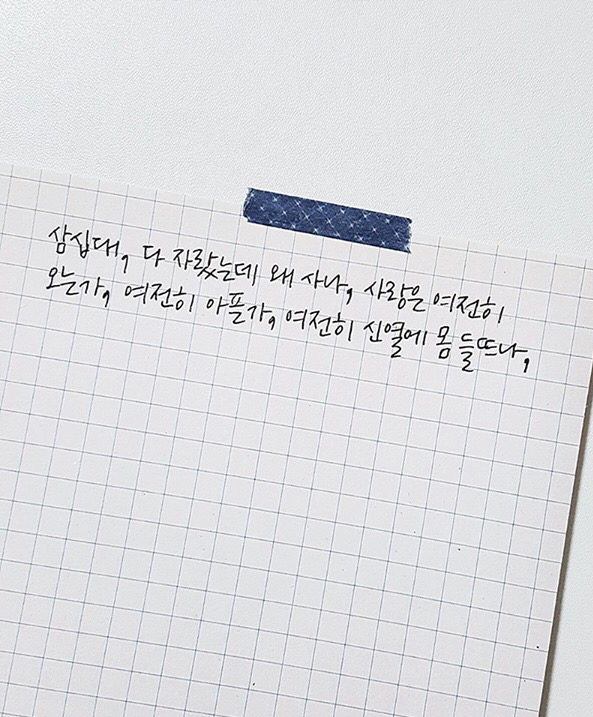 삼십대, 다 자랐는데 왜 사나, 사랑은 여전히
오는가, 여전히 아플가, 여전히 신열에 몸 들뜨나,